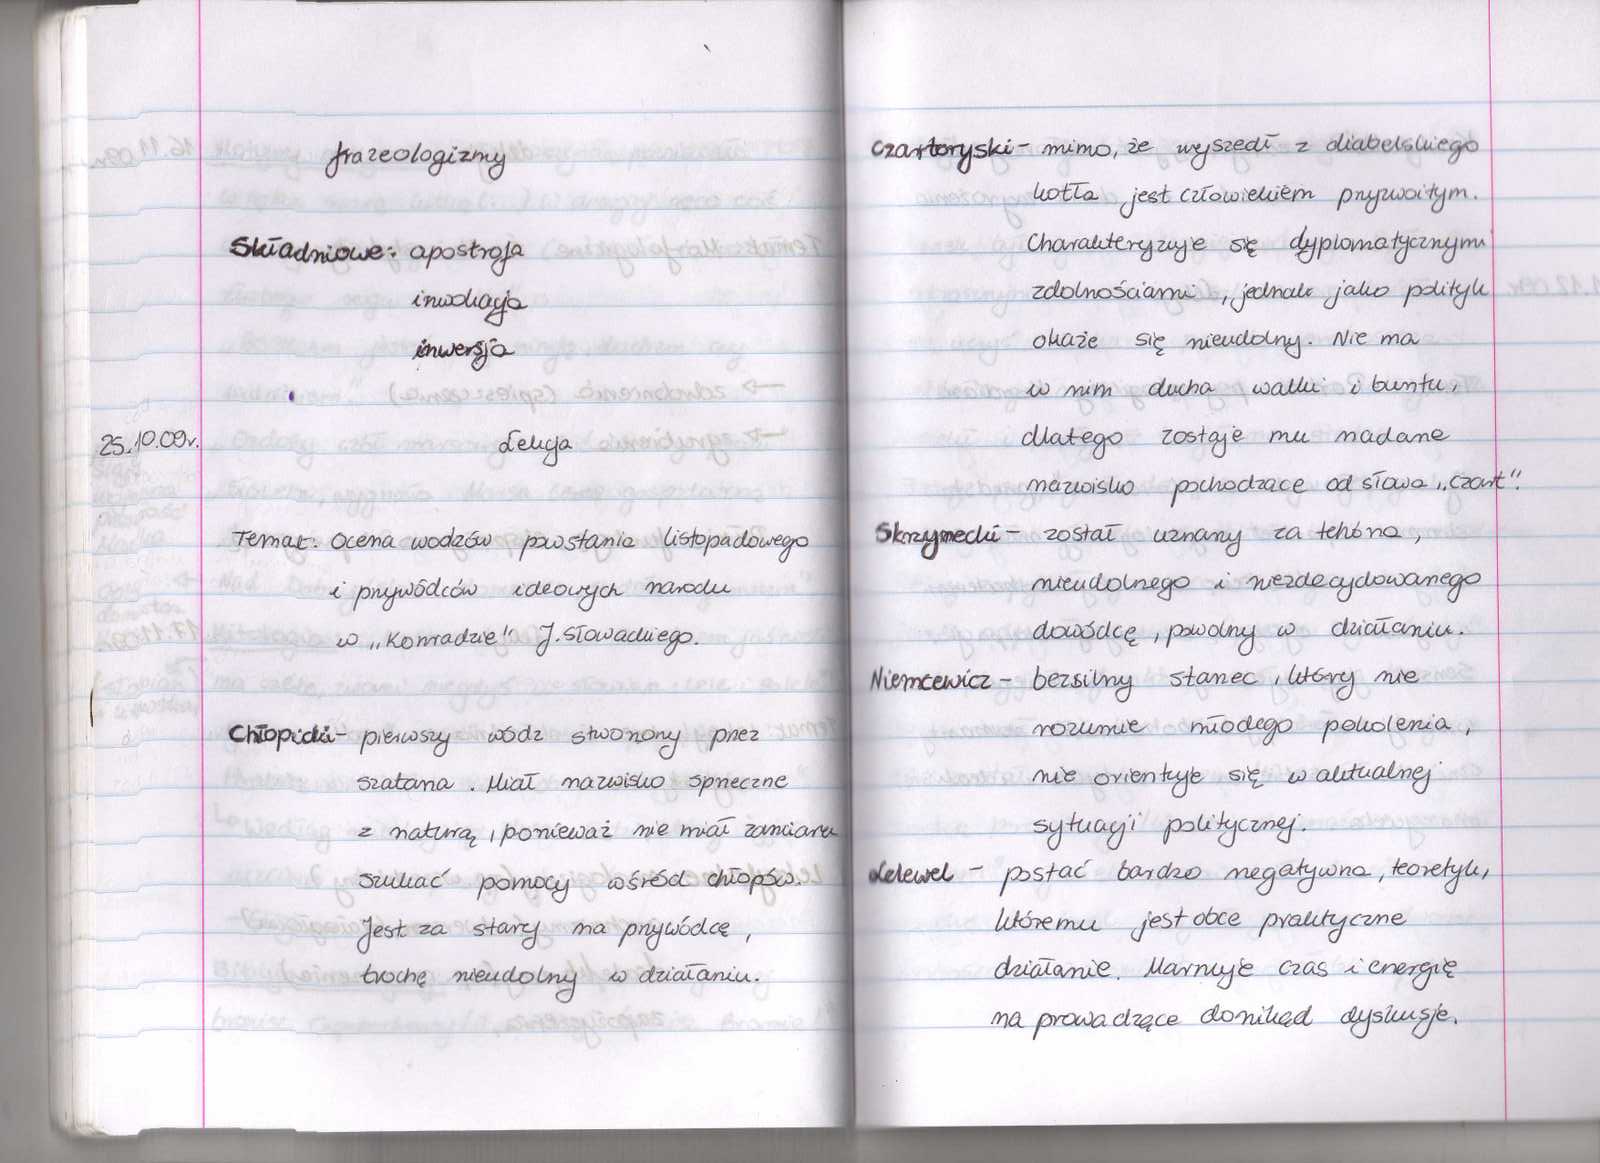 frazeologizmy
Składniowe: apostrofa
inwokacja
inwersja
25.10.09r. Lekcja
Temat: Ocena wodzów powstania listopadowego
i przywódców ideowych narodu
w „Konradzie" J. Słowackiego.
Chłopicki - pierwszy wódz stworzony przez
szatana. Miał nazwisko sprzeczne
z naturą, ponieważ nie miał zamiaru
szukać pomocy wśród chłopów.
Jest za stary na przywódcę,
trochę nieudolny w działaniu.
Czartoryski - mimo, że wyszedł z diabelskiego
kotła jest człowiekiem przyzwoitym.
Charakteryzuje się dyplomatycznymi
zdolnościami, jednak jako polityk
okaże się nieudolny. Nie ma
w nim ducha walki i buntu,
dlatego zostaje mu nadane
nazwisko pochodzące od słowa „czart".
Skrzynecki - został uznany za tchórza,
nieudolnego i niezdecydowanego
dowódcę, powolny w działaniu.
Niemcewicz - bezsilny starzec, który nie
rozumie młodego pokolenia,
nie orientuje się w aktualnej
sytuacji politycznej.
Lelewel - postać bardzo negatywna, teoretyk,
któremu jest obce praktyczne
działanie. Marnuje czas i energię
na prowadzące donikąd dyskusje.